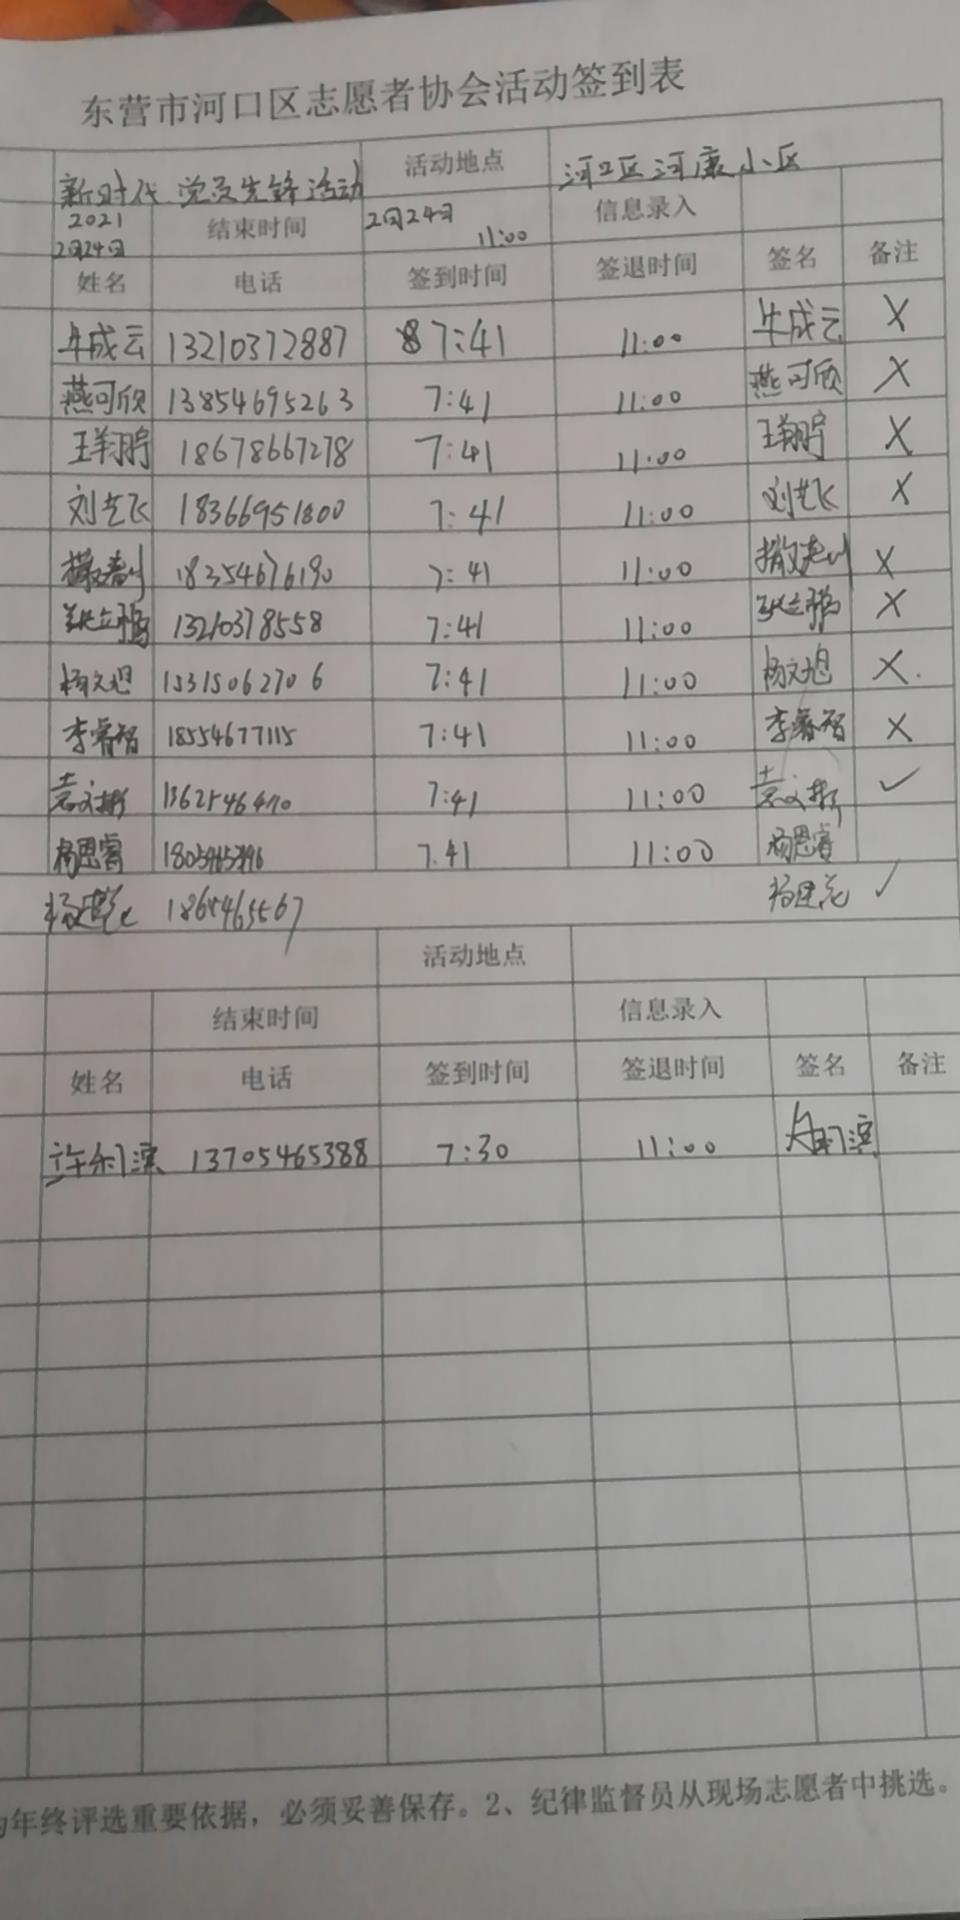 东营市河口区志愿者协会活动签到表
新时代 党员先锋活动 活动地点 河口区河康小区
2021 2月24日 结束时间 2月24日 11:00 信息录入
姓名 电话 签到时间 签退时间 签名 备注
牛成云 13210372887 87:41 11:00 牛成云 X
燕可欣 13854695263 7:41 11:00 燕可欣 X
王翔宇 18678667278 7:41 11:00 王翔宇 X
刘艺飞 18366951800 7:41 11:00 刘艺飞 X
18354676190 7:41 11:00 X
13210378558 7:41 11:00 X
杨文旭 15315062706 7:41 11:00 杨文旭 X
李睿智 18554677115 7:41 11:00 李睿智 X
袁文彬 7:41 11:00 袁文彬 ✓
杨恩睿 7:41 11:00 杨恩睿
✓
活动地点
结束时间 信息录入
姓名 电话 签到时间 签退时间 签名 备注
13705465388 7:30 11:00
年终评选重要依据，必须妥善保存。2、纪律监督员从现场志愿者中挑选。